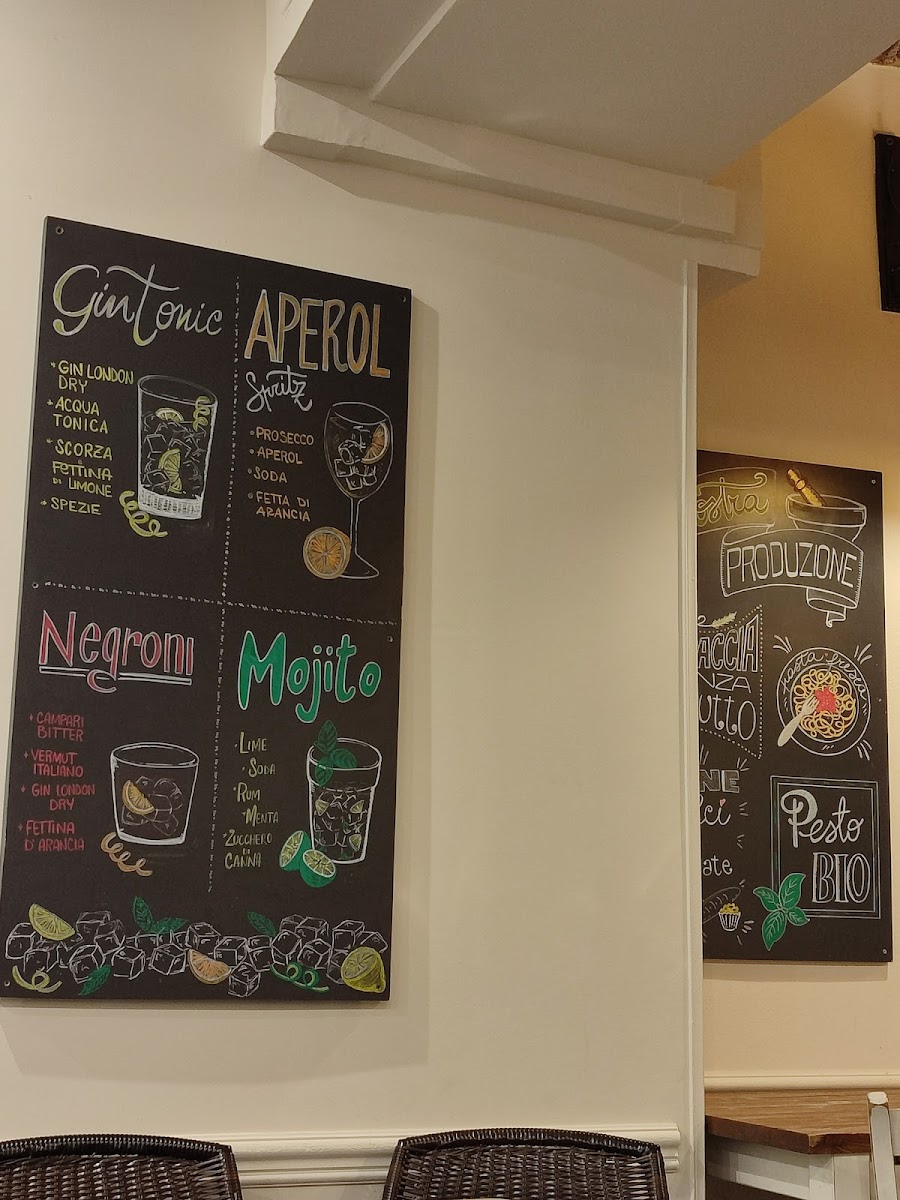 Gin Tonic
* GIN LONDON
DRY
* ACQUA
TONICA
* SCORZA
E
FETTINA
DI LIMONE
* SPEZIE
APEROL
Spritz
• PROSECCO
• APEROL
• SODA
• FETTA DI
ARANCIA
Negroni
• CAMPARI
BITTER
• VERMUT
ITALIANO
• GIN LONDON
DRY
• FETTINA
D'ARANCIA
Mojito
• LIME
• SODA
• RUM
• MENTA
• ZUCCHERO
DI
CANNA
ostra
PRODUZIONE
ACCIA
NZA
UTTO
Pasta fresca
NE
lci
ate
Pesto
BIO